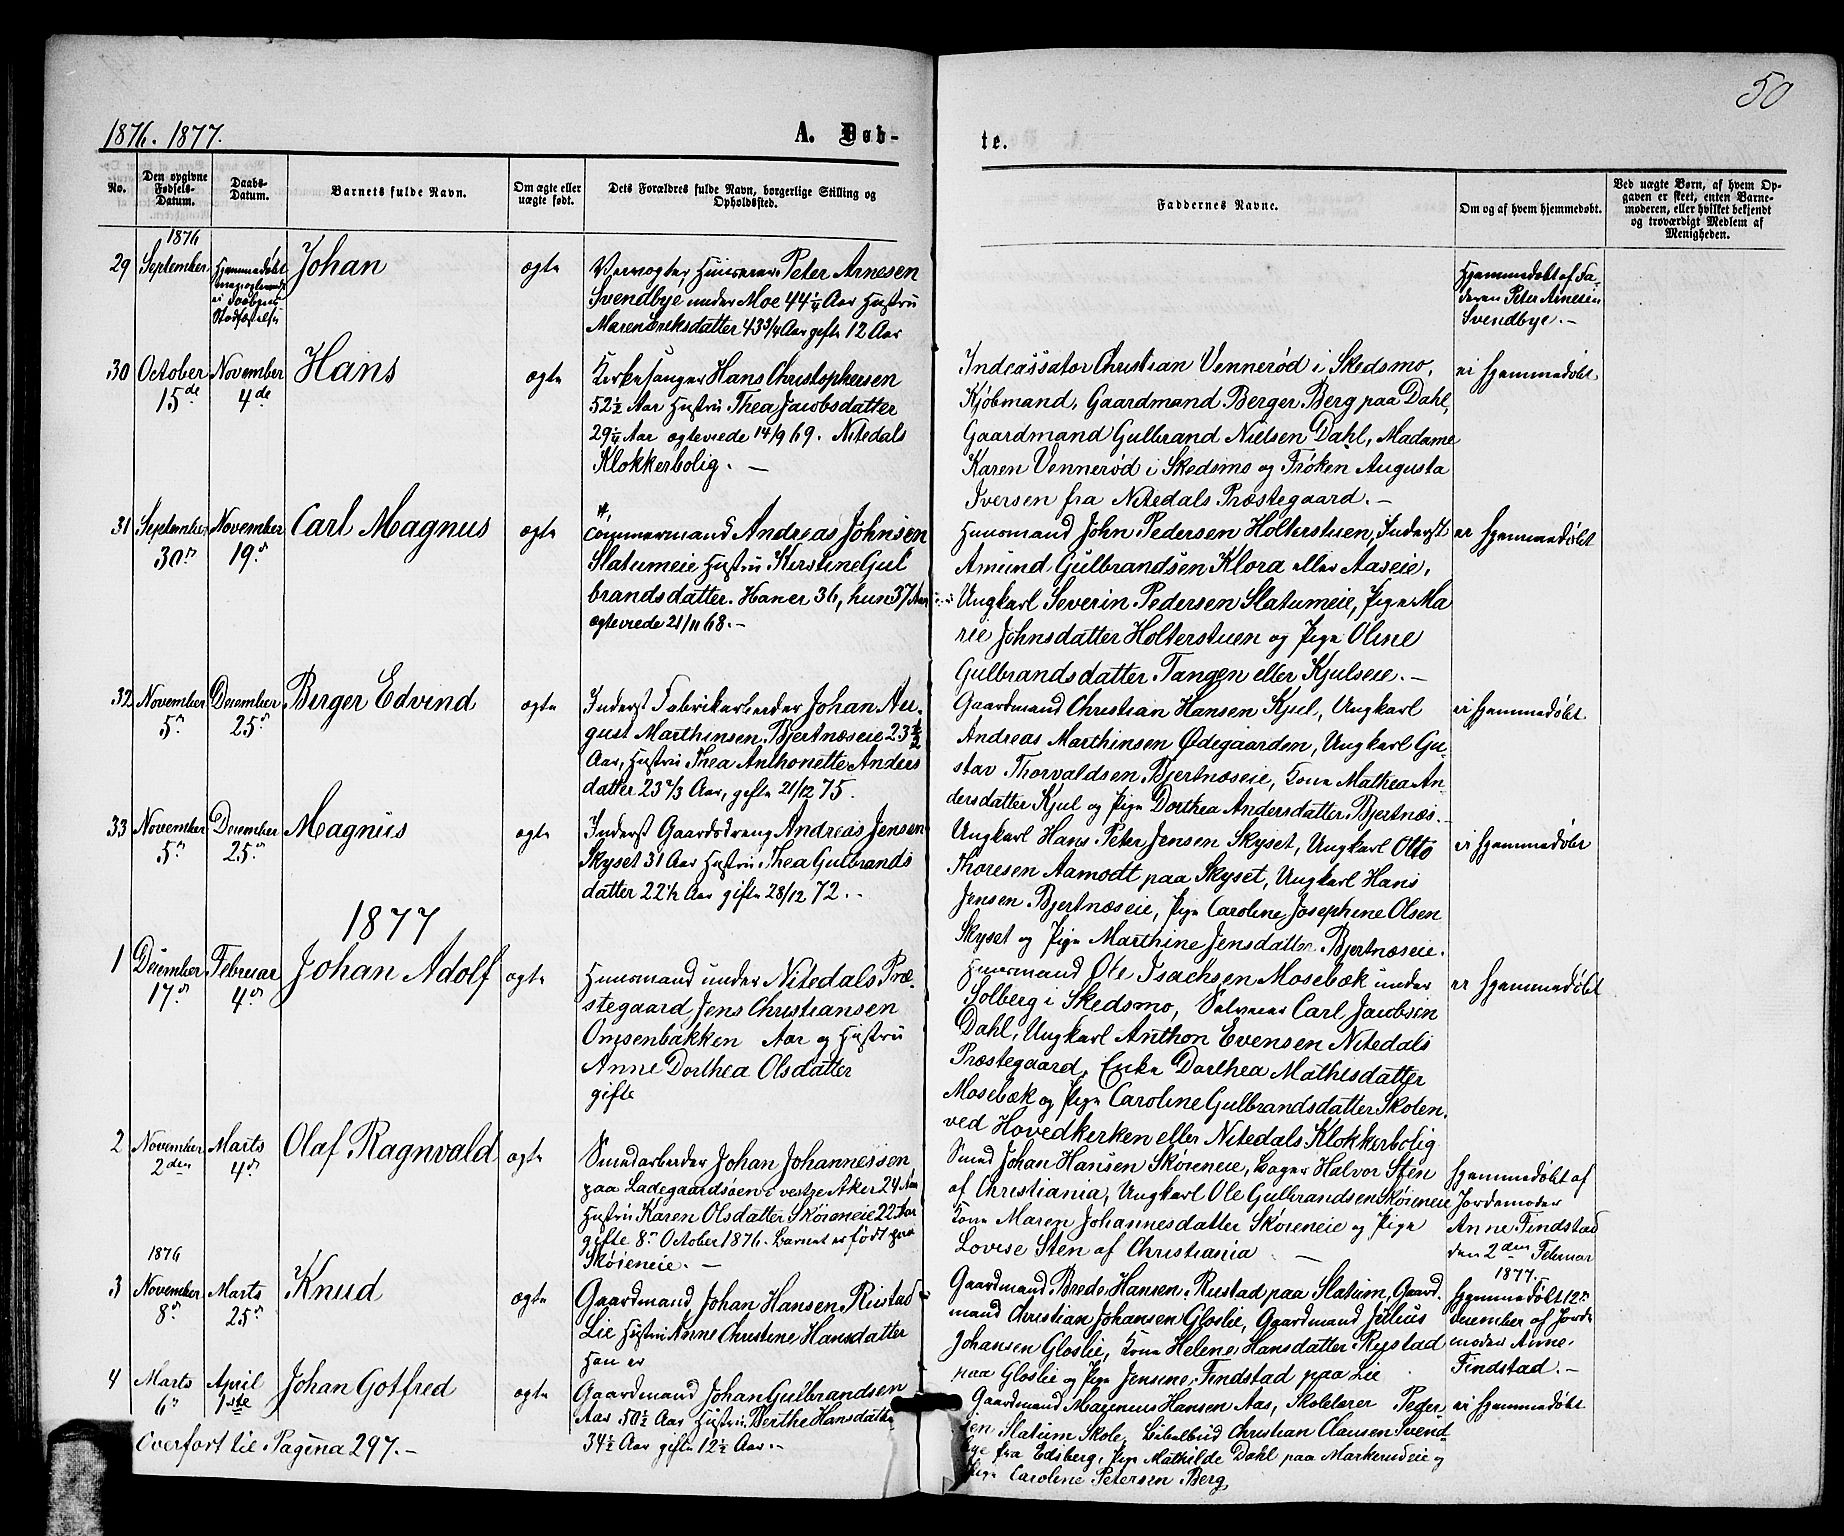 50
1876. 1877.
A. Døb-
te.
No.
Den opgivne Fødsels-Datum.
Daabs-Datum.
Barnets fulde Navn.
Om ægte eller uægte født.
Dets Forældres fulde Navn, borgerlige Stilling og Opholdssted.
Faddernes Navne.
Om og af hvem hjemmedøbt.
Ved uægte Børn, af hvem Op-
gaven er skeet, enten Barne-
moderen, eller hvilket bekjendt
og troværdigt Medlem af
Menigheden.
1876
29 September
Hjemmedøbt
Stadfæstelse
Johan
ægte
Peter Arnesen
Svendbye under Moe 44 1/4 Aar Hustru
Maren Eriksdatter 43 3/4 Aar gifte 12 Aar
Hjemmedøbt af Fa-
deren Peter Arnesen
Svendbye. -
30 October 15de
November 4de
Hans
ægte
Kirkesanger Hans Christophersen
52 1/2 Aar Hustru Thea Jacobsdatter
29 1/4 Aar ægteviede 14/9 69. Nitedals
Klokkerbolig. -
Indcassator Christian Vennerød i Skedsmo,
Kjøbmand, Gaardmand Berger Berg paa Dahl,
Gaardmand Gulbrand Nielsen Dahl, Madame
Karen Vennerød i Skedsmo og Frøken Augusta
Iversen fra Nitedals Præstegaard. -
ei hjemmedøbt
31 September 30n
November 19n
Carl Magnus
ægte
Tømmermand Andreas Johnsen
Slatumeie Hustru Kirstine Gul
brandsdatter. Han er 36, hun 37 Aar
ægteviede 21/11 68. -
Huusmand John Pedersen Holterstuen, Inderst
Amund Gulbrandsen Klora eller Aaseie,
Ungkarl Severin Pedersen Slatumeie, Pige Ma
rie Johnsdatter Holterstuen og Pige Oline
Gulbrandsdatter Tangen eller Kjulseie. -
ei hjemmedøbt
32 November 5n
December 25n
Birger Edvind
ægte
Inderst Fabrikarbeider Johan Au-
gust Marthinsen Bjertnæseie 23 1/2
Aar, Hustru Thea Anthonette Anders
datter 23 2/3 Aar, gifte 21/12 75.
Gaardmand Christian Hansen Kjul, Ungkarl
Andreas Marthinsen Ødegaarden, Ungkarl Gu-
stav Thorvaldsen Bjertnæseie, Kone Mathea An-
dersdatter Kjul og Pige Dorthea Andersdatter Bjertnæs. -
ei hjemmedøbt
33 November 5n
December 25n
Magnus
ægte
Inderst Gaardsdreng Andreas Jensen
Skyset 31 Aar Hustru Thea Gulbrands
datter 22 1/2 Aar gifte 28/12 72. -
Ungkarl Hans Peter Jensen Skyset, Ungkarl Otto
Thoresen Aamodt paa Skyset, Ungkarl Hans
Jensen Bjertnæseie, Pige Caroline Josephine Olsen
Skyset og Pige Marthine Jensdatter Bjertnæseie.
ei hjemmedøbt
1877
1 December 17n
Februar 4n
Johan Adolf
ægte
Huusmand under Nitedals Præ-
stegaard Jens Christiansen
Omsenbakken Aar og Hustru
Anne Dorthea Olsdatter
gifte
Huusmand Ole Isachsen Mosebæk under
Solberg i Skedsmo, Selveier Carl Jacobsen
Dahl, Ungkarl Anthon Evensen Nitedals
Præstegaard, Enke Dorthea Mathisdatter
Mosebæk og Pige Caroline Gulbrandsdatter Skolen
ved Hovedkirken eller Nitedals Klokkerbolig
ei hjemmedøbt
2 November 2den
Marts 4n
Olaf Ragnvald
ægte
Smedarbeider Johan Johannessen
paa Ladegaardsøen i vestre Aker 24 Aar
Hustru Karen Olsdatter Skøieneie 22 Aar
gifte 8n October 1876. Barnet er født paa
Skøieneie. -
Smed Johan Hansen Skøieneie, Bager Halvor Sten
af Christiania, Ungkarl Ole Gulbrandsen Skøieneie
Kone Maren Johannesdatter Skøieneie og Pige
Lovise Sten af Christiania -
Hjemmedøbt af
Jordemoder
Anne Findstad
den 2den Februar
1877.
1876
3 November 8n
Marts 25n
Knud
ægte
Gaardmand Johan Hansen Rustad
Lie Hustru Anne Christine Hansdatter
Han er
Gaardmand Brede Hansen Rustad paa Slatum, Gaard-
mand Christian Johansen Gloslie, Gaardmand Julius
Johansen Gloslie, Kone Helene Hansdatter Rustad
paa Gloslie og Pige Jensine Findstad paa Lie
Hjemmedøbt 12n
December af Jorde
moder Anne
Findstad. -
4 Marts 6n
April 1ste
Johan Gotfred
ægte
Gaardmand Johan Gulbrandsen
Aas 50 1/2 Aar Hustru Berthe Hansdatter
34 1/2 Aar gifte 12 1/2 Aar. -
Gaardmand Magnus Hansen Aas, Skolelærer Peder
sen Slatum Skole, Bibelbud Christian Clausen Svend-
bye fra Edsberg, Pige Mathilde Dahl paa Markerudeie og
Pige Caroline Petersen Berg,
ei hjemmedøbt
Overført til Pagina 297. -